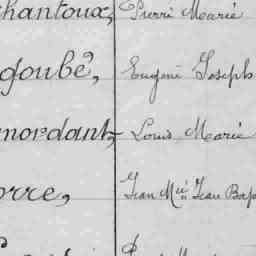 hantoux, Pierre Marie
goubé, Eugène Joseph
mordant, Louis Marie
orre, Jean Mie Jean Bap